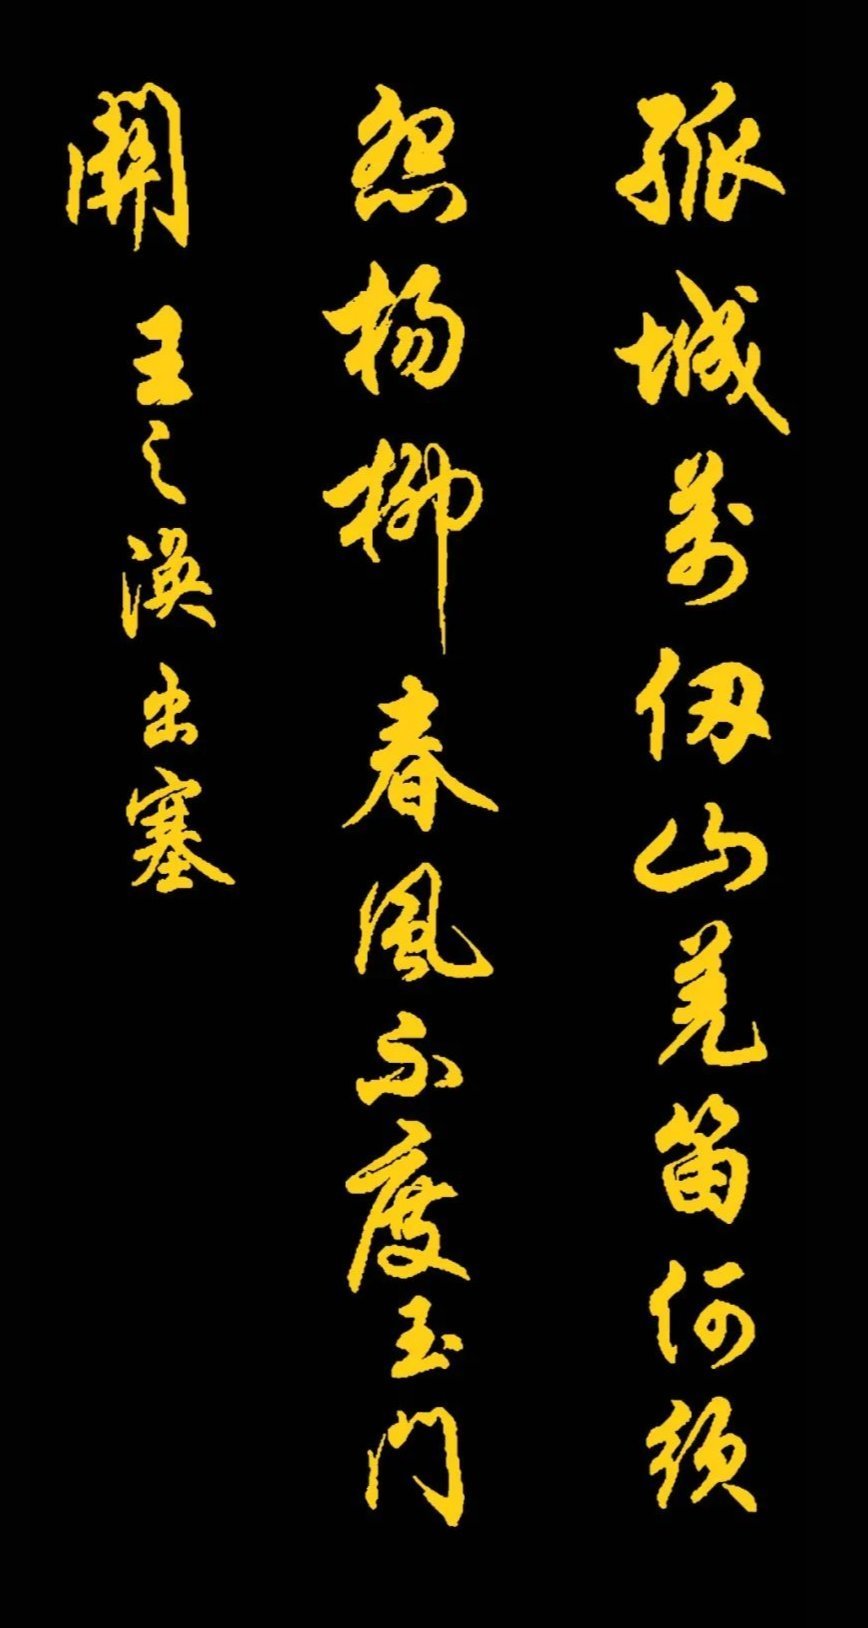 孤城万仞山羌笛何须
怨杨柳春风不度玉门
關王之涣出塞